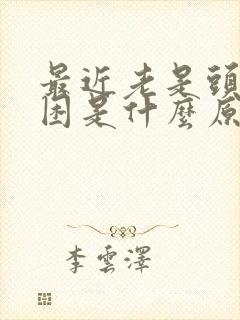 最近老是頭
困是什麼原
李雲澤